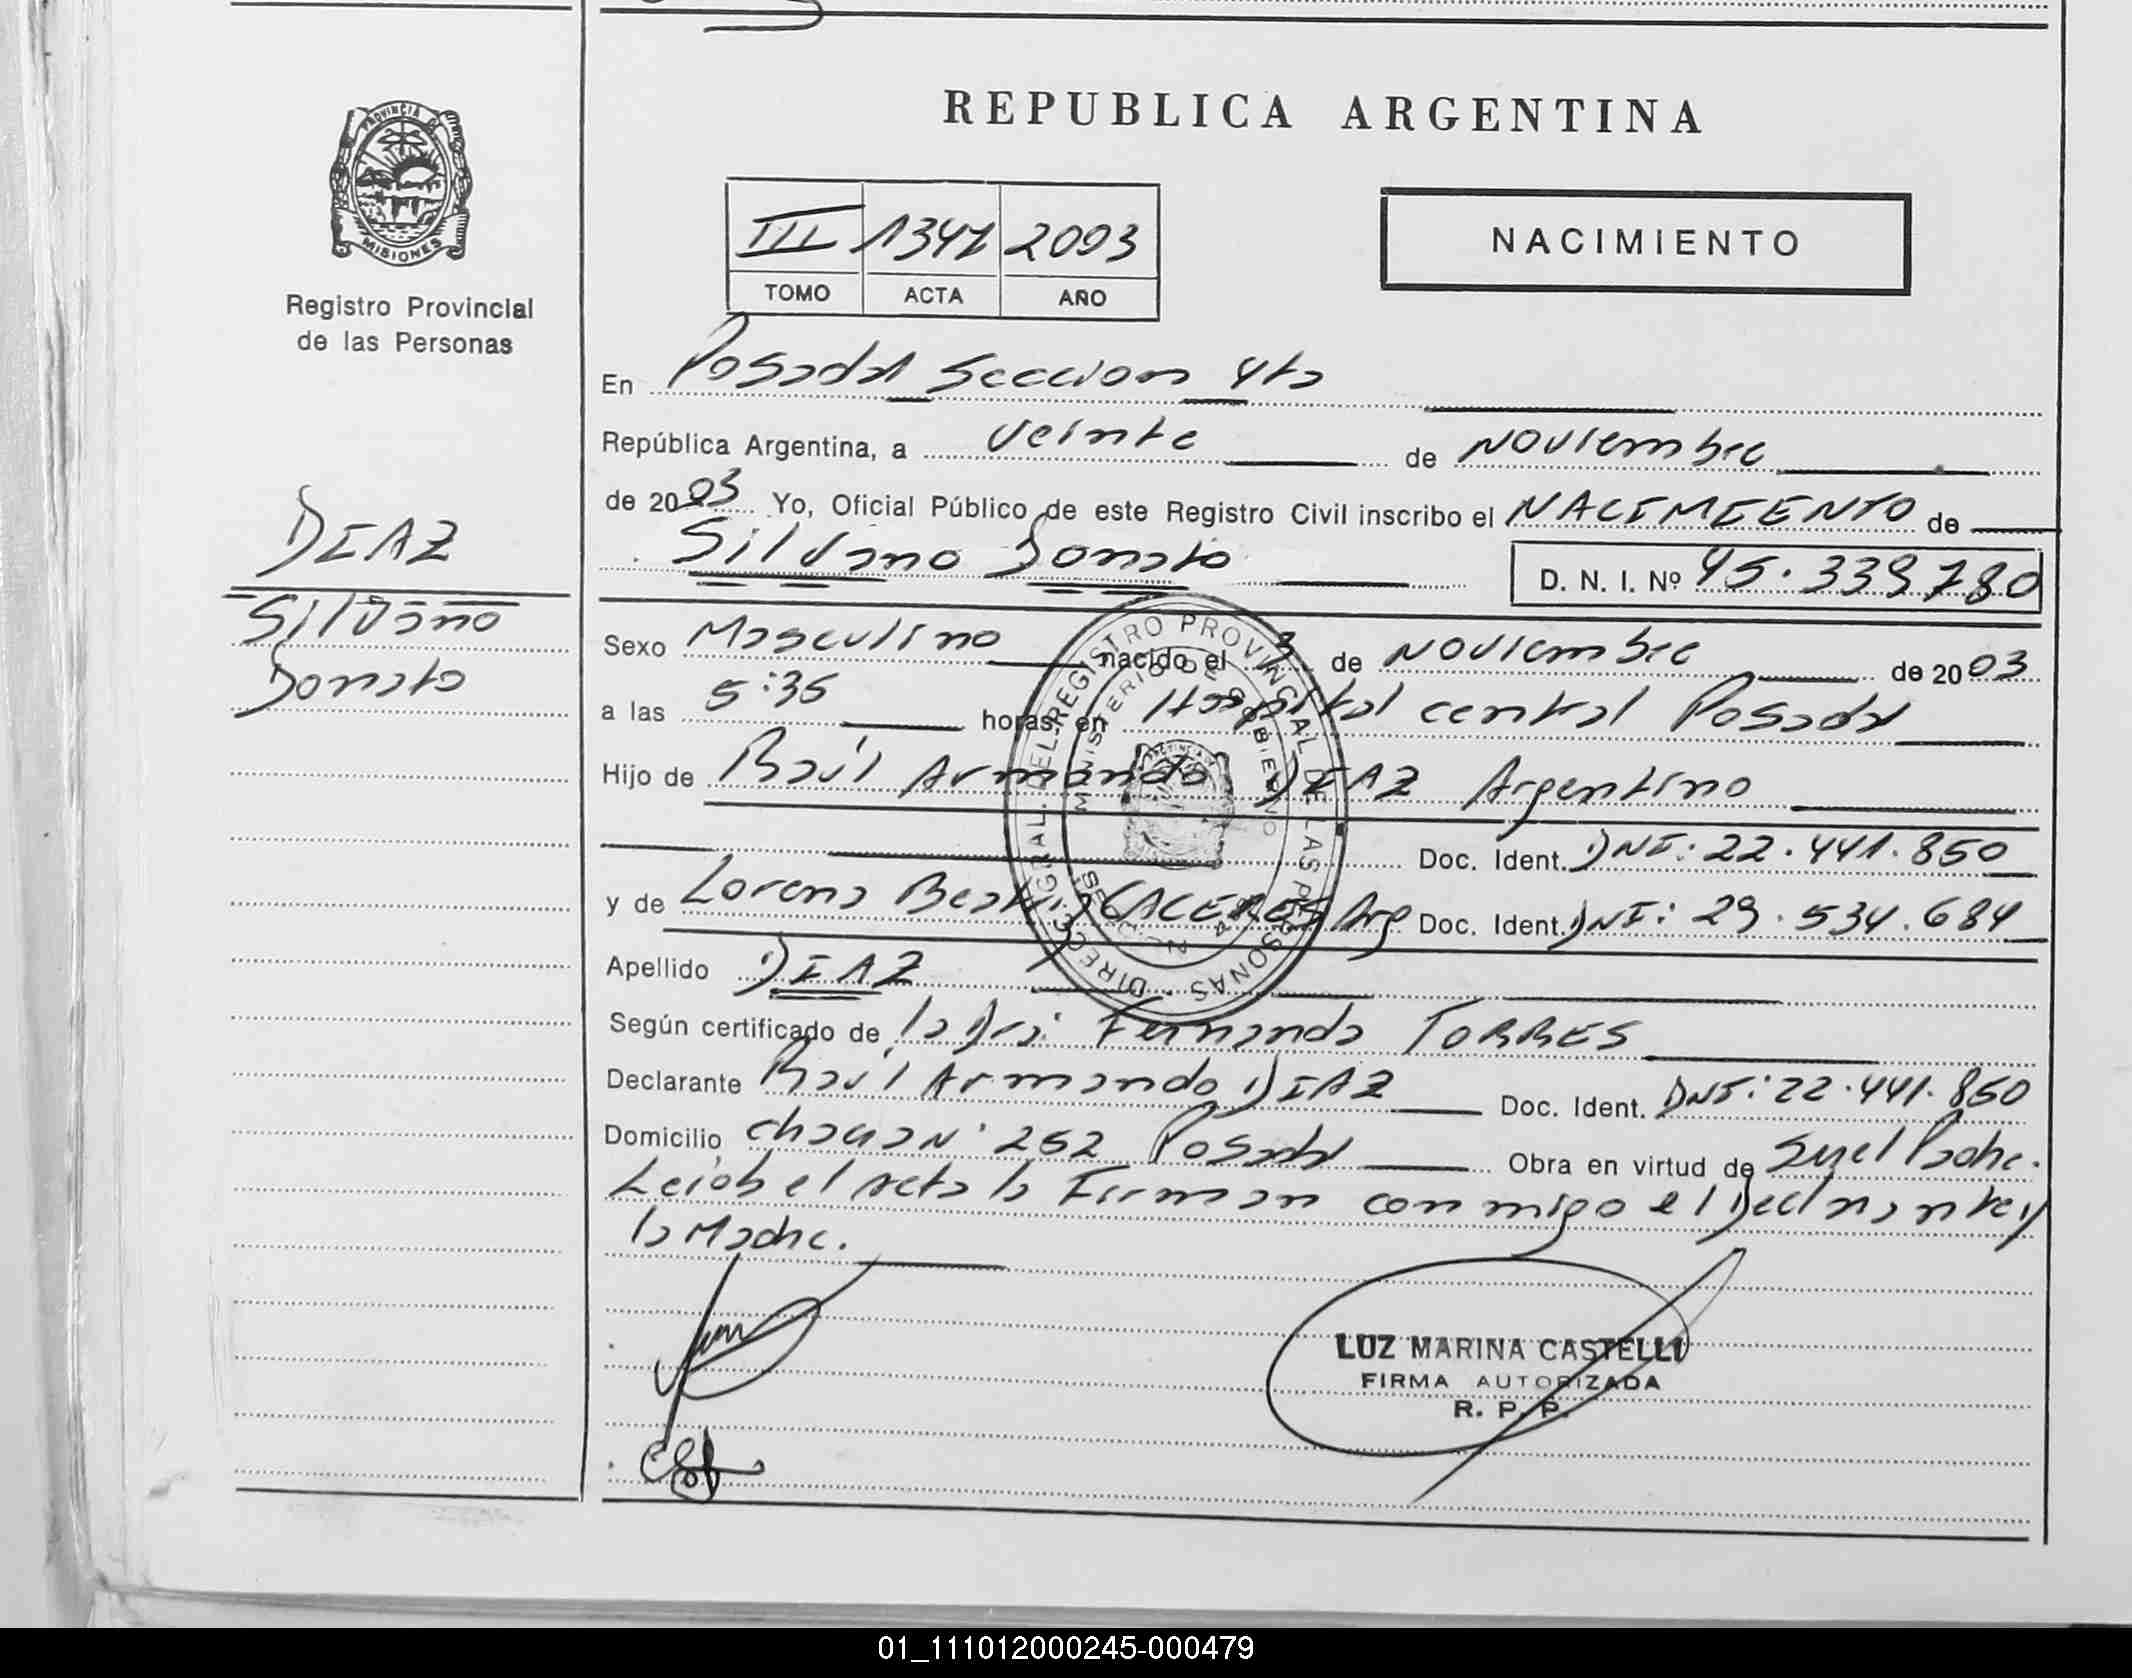 REPUBLICA ARGENTINA
PROVINCIA DE
MISIONES
Registro Provincial
de las Personas
III 1347 2003
TOMO ACTA AÑO
NACIMIENTO
En Posadas Seccion 4ta
República Argentina, a veinte de noviembre
de 2003 Yo, Oficial Público de este Registro Civil inscribo el NACIMIENTO de
Silvano Donato D. N. I. Nº 45.339.780
DIAZ
Silvano
Donato
Sexo Masculino nacido el 3 de noviembre de 2003
a las 5:35 horas en Hospital central Posadas
Hijo de Raúl Armando DIAZ Argentino
Doc. Ident. DNI: 22.441.850
y de Lorena Beatriz CACERES Arg Doc. Ident. DNI: 29.534.684
Apellido DIAZ
Según certificado de la Dra. Fernanda TORRES
Declarante Raúl Armando DIAZ Doc. Ident. DNI: 22.441.850
Domicilio chacra Nº 252 Posadas Obra en virtud de ser el Padre.
Leida el acta la Firman conmigo el Declarante y
la Madre.
DIREC. GRAL. DEL REGISTRO PROVINCIAL DE LAS PERSONAS
MINISTERIO DE GOBIERNO
LUZ MARINA CASTELLI
FIRMA AUTORIZADA
R. P. P.
01_111012000245-000479